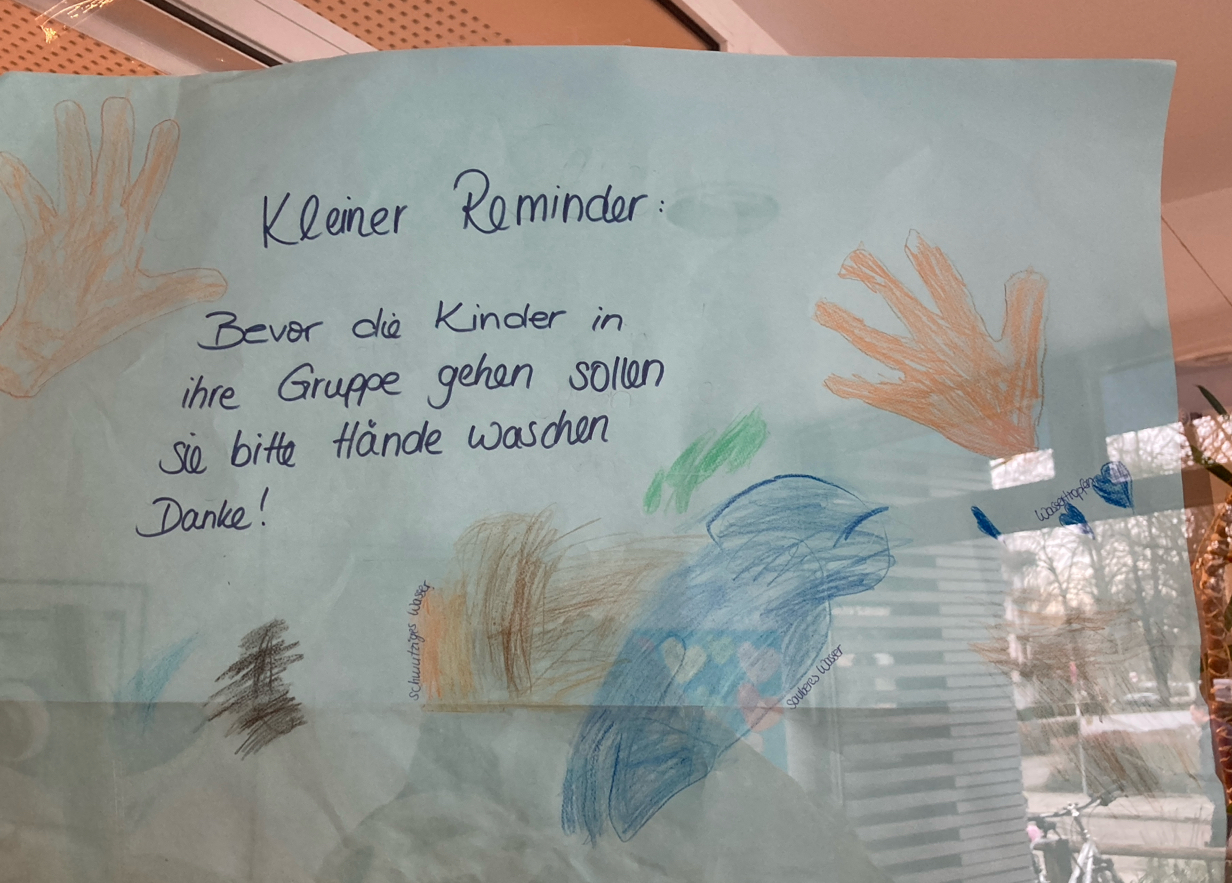 Kleiner Reminder:
Bevor die Kinder in
ihre Gruppe gehen sollen
sie bitte Hände waschen
Danke!
Wassertropfen
schmutziges Wasser
sauberes Wasser